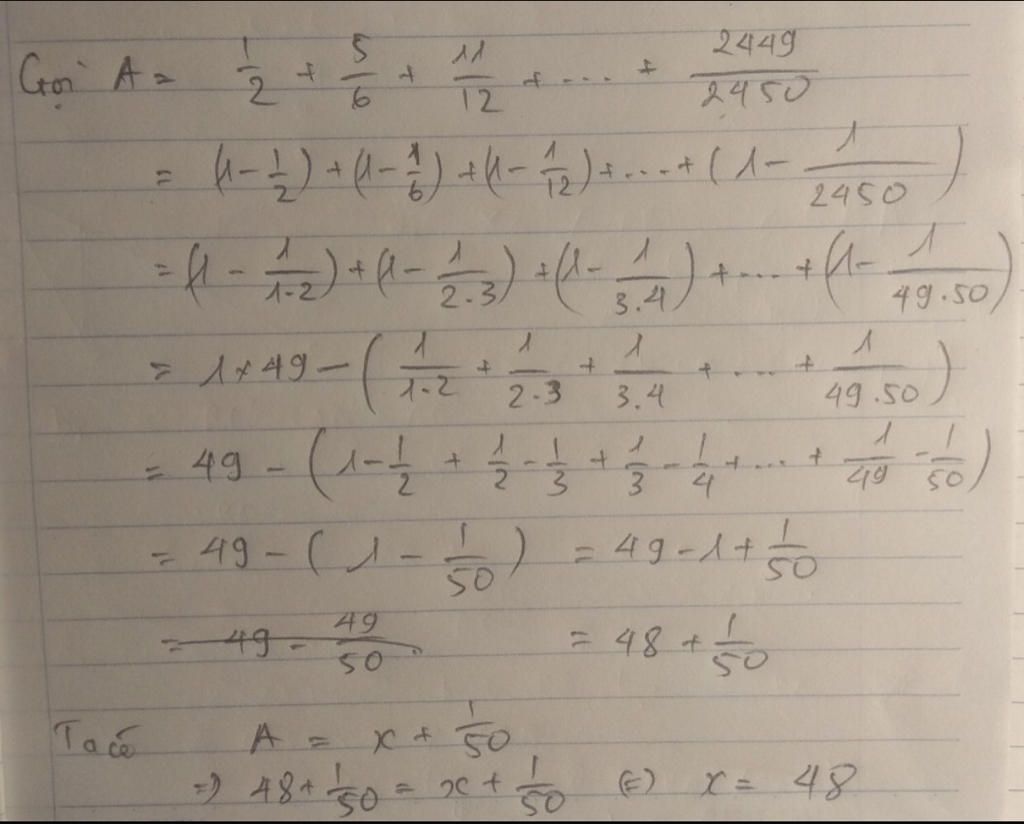 Gọi A = 1/2 + 5/6 + 11/12 + .... + 2449/2450
= (1 - 1/2) + (1 - 1/6) + (1 - 1/12) + .... + (1 - 1/2450)
= (1 - 1/1.2) + (1 - 1/2.3) + (1 - 1/3.4) + .... + (1 - 1/49.50)
= 1 × 49 - (1/1.2 + 1/2.3 + 1/3.4 + .... + 1/49.50)
= 49 - (1 - 1/2 + 1/2 - 1/3 + 1/3 - 1/4 + ... + 1/49 - 1/50)
= 49 - (1 - 1/50) = 49 - 1 + 1/50
= 49 - 49/50. = 48 + 1/50
Ta có A = x + 1/50
=> 48 + 1/50 = x + 1/50 (=) x = 48